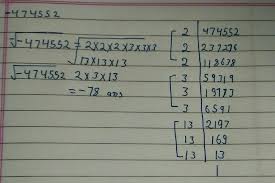 -474552
√-474552 = √2×2×2×3×3×3
13×13×13
√-474552 2×3×13
= -78 ans
2 | 474552
2 | 237276
2 | 118638
3 | 59319
3 | 19773
3 | 6591
13 | 2197
13 | 169
13 | 13
1